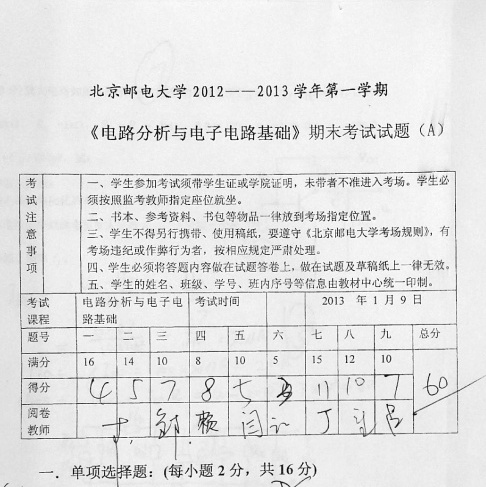 北京邮电大学 2012——2013 学年第一学期
《电路分析与电子电路基础》期末考试试题（A）
考试注意事项
一、学生参加考试须带学生证或学院证明，未带者不准进入考场。学生必
须按照监考教师指定座位就坐。
二、书本、参考资料、书包等物品一律放到考场指定位置。
三、学生不得另行携带、使用稿纸，要遵守《北京邮电大学考场规则》，有
考场违纪或作弊行为者，按相应规定严肃处理。
四、学生必须将答题内容做在试题答卷上，做在试题及草稿纸上一律无效。
五、学生的姓名、班级、学号、班内序号等信息由教材中心统一印制。
考试课程 电路分析与电子电路基础 考试时间 2013 年 1 月 9 日
题号 一 二 三 四 五 六 七 八 九 总分
满分 16 14 10 8 10 5 15 12 10
得分 4 5 7 8 5 11 10 7 60
阅卷教师
一．单项选择题：(每小题 2 分，共 16 分)